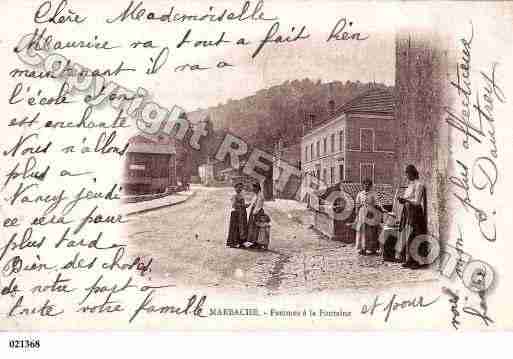 021368
Chère Mademoiselle
Maurice va tout à fait bien
maintenant il va à
l'école et en
est enchanté
Nous n'allons
plus à
Nancy jeudi
ce sera pour
plus tard
Bien des choses
de notre part à
toute votre famille et pour
vous mon plus affectueux
C. Dautrey
MARBACHE. - Femmes à la Fontaine
Copyright notrefamille.com